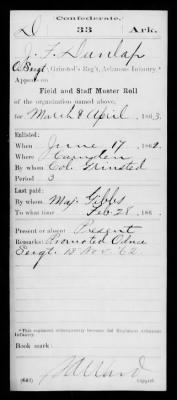 Confederate.
D 33 Ark.
J. F. Dunlap
O. Sergt., Grinsted's Reg't, Arkansas Infantry.*
Appears on
Field and Staff Muster Roll
of the organization named above,
for March & April, 1863.
Enlisted:
When June 17, 1862.
Where Hampton
By whom Col. Grinsted
Period 3
Last paid:
By whom Maj. Gibbs
To what time Feb. 28, 186 .
Present or absent Present
Remarks: Promoted Odnce
Sergt. 15 Nov. 62.
*This regiment subsequently became 33d Regiment Arkansas
Infantry.
Book mark:
(641) Copyist.